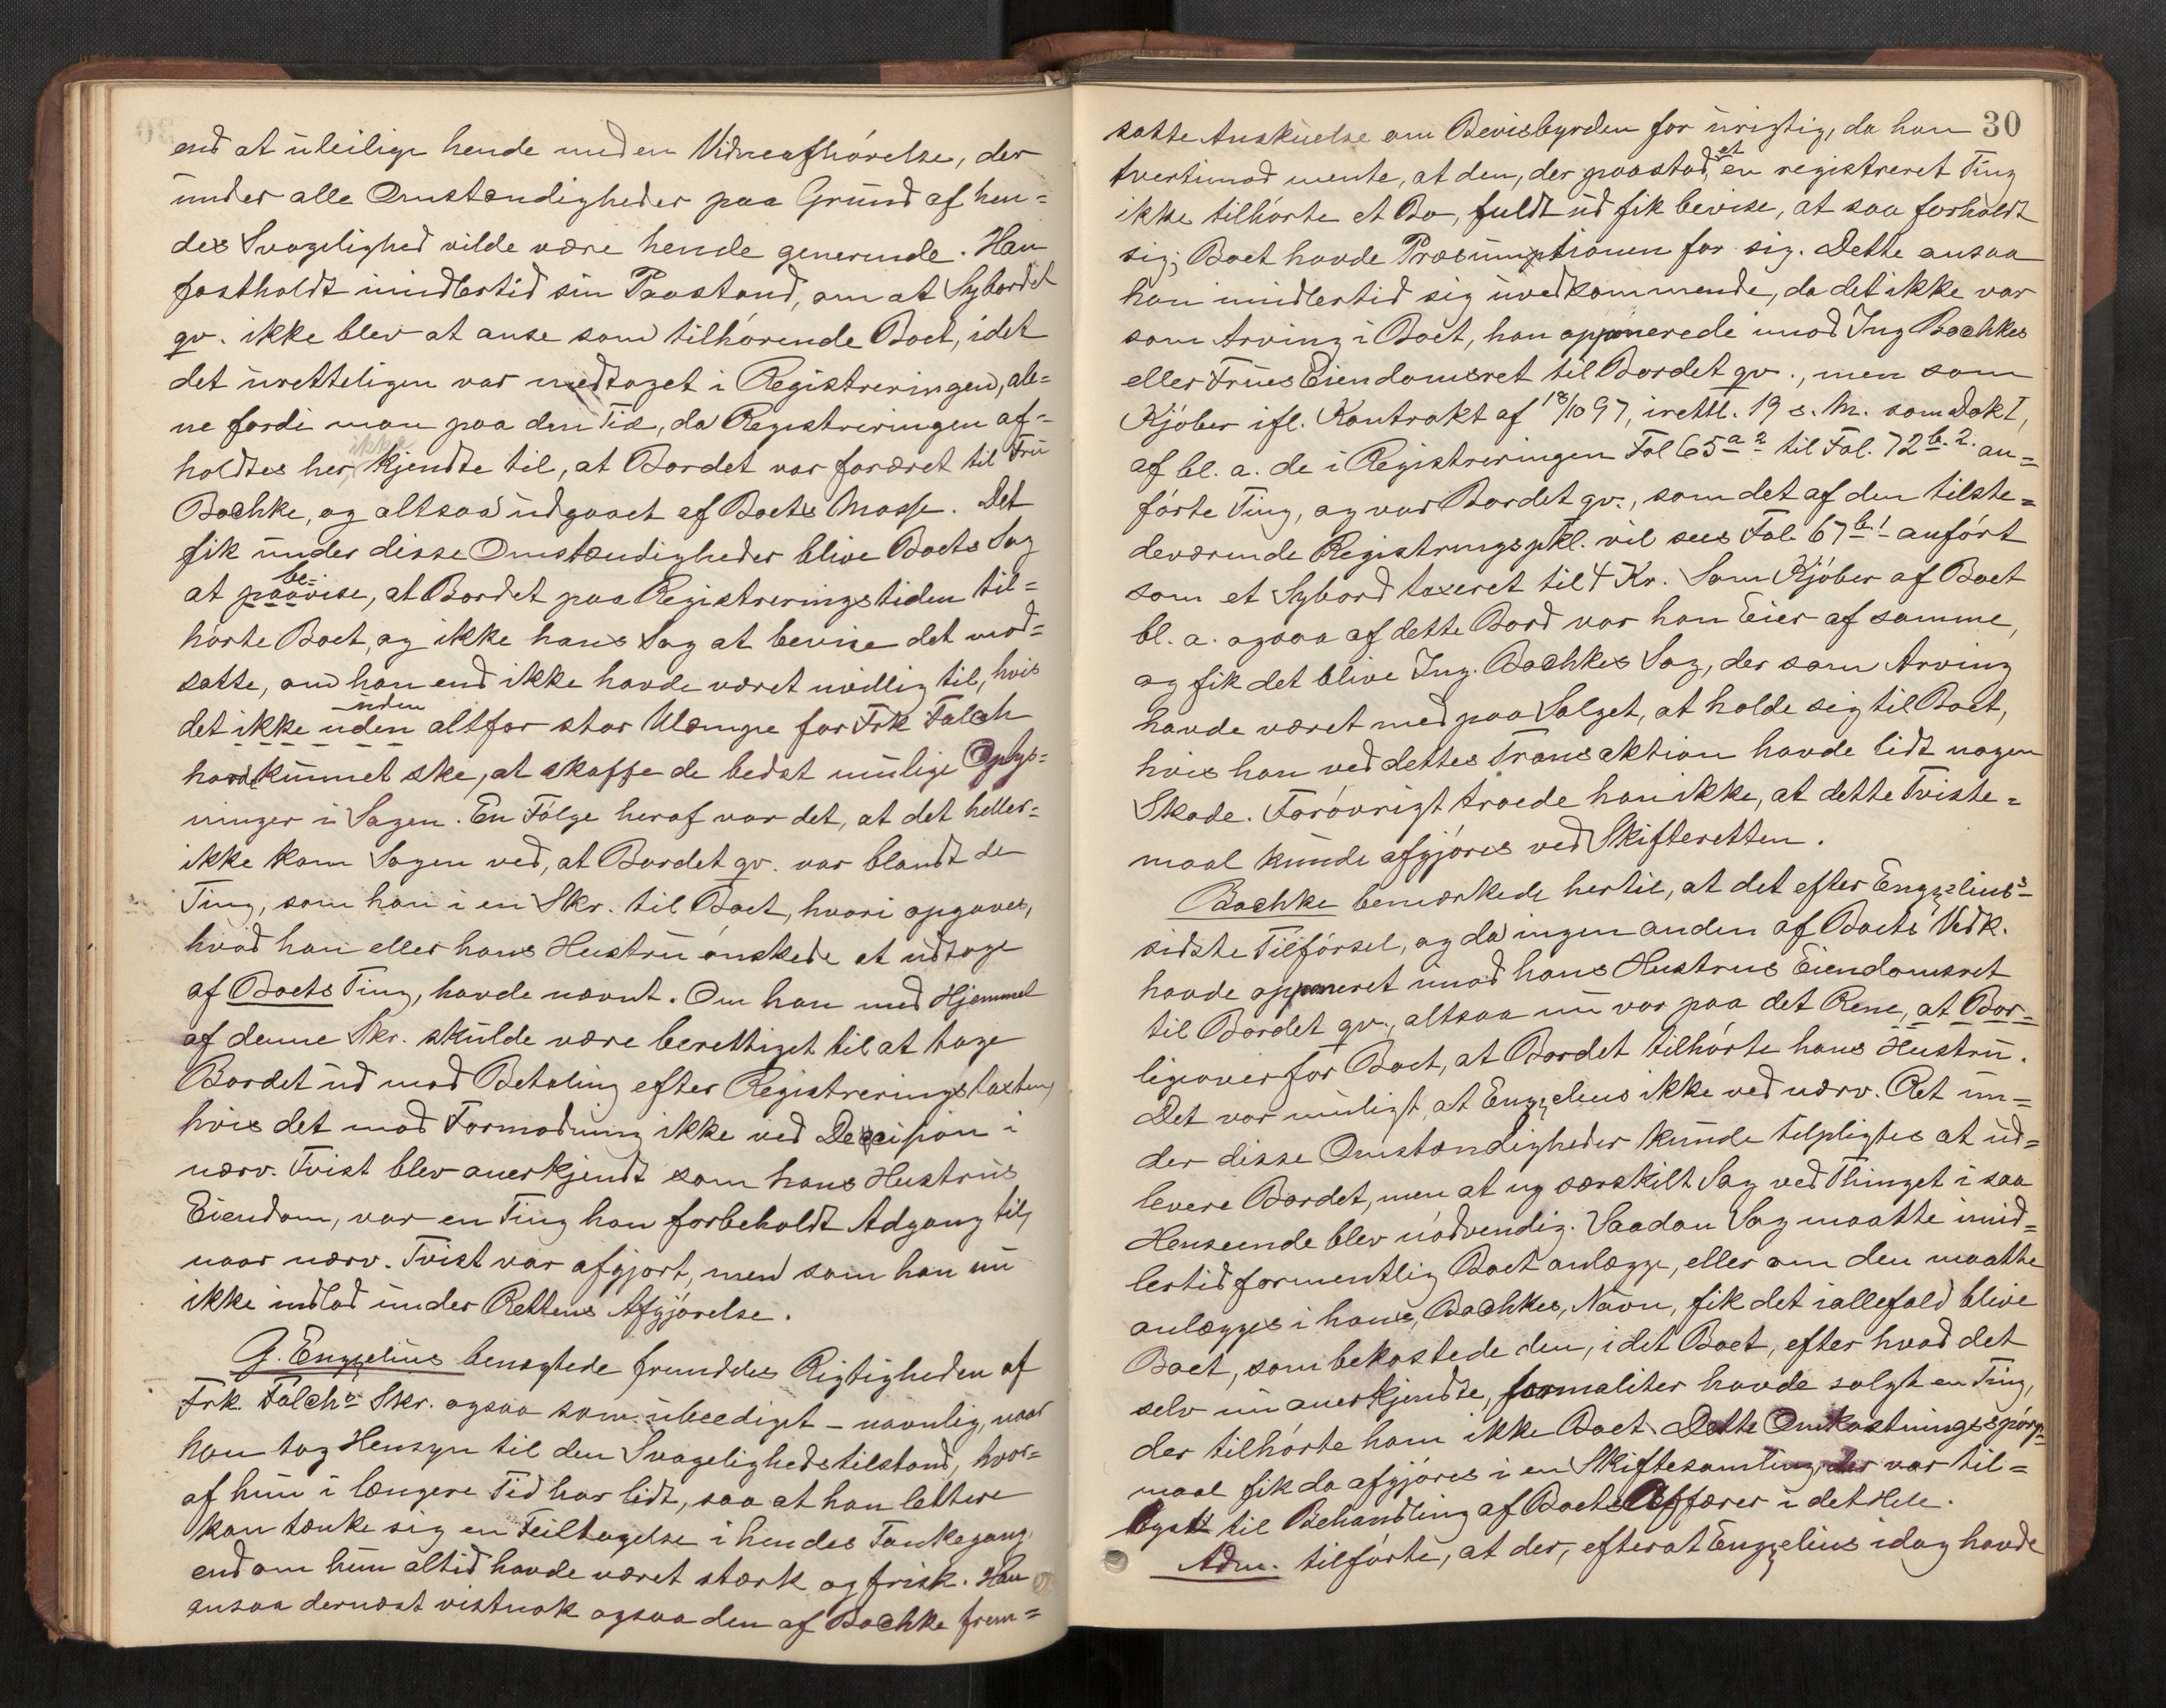 end at uleilige hende med en Vidneafhörelse, der
under alle Omstændigheder paa Grund af hen=
des Svagelighed vilde være hende generende. Han
fastholdt imidlertid sin Paastand, om at Sybordet
qv. ikke blev at anse som tilhörende Boet, idet
det uretteligen var medtaget i Registreringen, ale=
ne fordi man paa den Tid, da Registreringen af=
holdtes her, ikke kjendte til, at Bordet var foræret til Fru
Bachke, og altsaa udgaaet af Boets Masse. Det
fik under disse Omstændigheder blive Boets Sag
at paavise, be= at Bordet paa Registreringstiden til=
hörte Boet, og ikke hans Sag at bevise det mod=
satte, om han end ikke havde været uvillig til, hvis
det ikke uden uden altfor stor Ulæmpe for Frk Falch
havde kunnet ske, at skaffe de bedst mulige Oplys=
ninger i Sagen. En Fölge heraf var det, at det heller=
ikke kom Sagen ved, at Bordet qv. var blandt de
Ting, som han i en Skr. til Boet, hvori opgaves,
hvad han eller hans Hustru önskede at udtage
af Boets Ting, havde nævnt. Om han med Hjemmel
af denne Skr. skulde være berettiget til at tage
Bordet ud mod Betaling efter Registreringstaxten,
hvis det mod Formodning ikke ved Decision i
nærv. Tvist blev anerkjendt som hans Hustrus
Eiendom, var en Ting han forbeholdt Adgang til,
naar nærv. Tvist var afgjort, men som han nu
ikke indlod under Rettens Afgjörelse.
G. Engzelius benægtede fremdeles Rigtigheden af
Frk. Falchs Skr. ogsaa som ubeediget – navnlig, naar
han tog Hensyn til den Svagelighedstilstand, hvor=
af hun i længere Tid har lidt, saa at han lettere
kan tænke sig en Feiltagelse i hendes Tankegang
end om hun altid havde været stærk og frisk. Han
ansaa dernæst vistnok ogsaa den af Bachke frem=
30
satte Anskuelse om Bevisbyrden for urigtig, da han
tvertimod mente, at den, der paastod, at en registreret Ting
ikke tilhörte et Bo, fuldt ud fik bevise, at saa forholdt
sig; Boet havde Præsumptionen for sig. Dette ansaa
han imidlertid sig uvedkommende, da det ikke var
som Arving i Boet, han opponerede imod Ing Bachkes
eller Frues Eiendomsret til Bordet qv., men som
Kjöber ifl. Kontrakt af 18/10 97, irettl. 19 s. M. som Dokt I,
af bl. a. de i Registreringen Fol 65 a 2 til Fol. 72 b. 2. an=
förte Ting, og var Bordet qv., som det af den tilste=
deværende Registrngsptkl. vil sees Fol. 67 b. 1 anfört
som et Sybord taxeret til 4 Kr. Som Kjöber af Boet
bl. a. ogsaa af dette Bord var han Eier af samme,
og fik det blive Ing. Bachkes Sag, der som Arving
havde været med paa Salget, at holde sig til Boet,
hvis han ved dettes Transaktion havde lidt nogen
Skade. Forövrigt troede han ikke, at dette Tviste=
maal kunde afgjöres ved Skifteretten.
Bachke bemærkede hertil, at det efter Engzelius's
sidste Tilförsel, og da ingen anden af Boets Vedk.
havde opponeret imod hans Hustrus Eiendomsret
til Bordet qv., altsaa nu var paa det Rene, at Bor=
ligeoverfor Boet, at Bordet tilhörte hans Hustru.
Det var muligt, at Engzelius ikke ved nærv. Ret un=
der disse Omstændigheder kunde tilpligtes at ud=
levere Bordet, men at ny særskilt Sag ved Thinget i saa
Henseende blev nödvendig. Saadan Sag maatte imid=
lertid formentlig Boet anlægge, eller om den maatte
anlægges i hans, Bachkes, Navn, fik det iallefald blive
Boet, som bekostede den, idet Boet, efter hvad det
selv nu anerkjendte, formaliter havde solgt en Ting,
der tilhörte ham ikke Boet. Dette Omkostningsspörgs=
maal fik da afgjöres i en Skiftesamling, der var til=
lyst til Behandling af Boets Affærer i det Hele.
Adm. tilförte, at der, efterat Engzelius idag havde